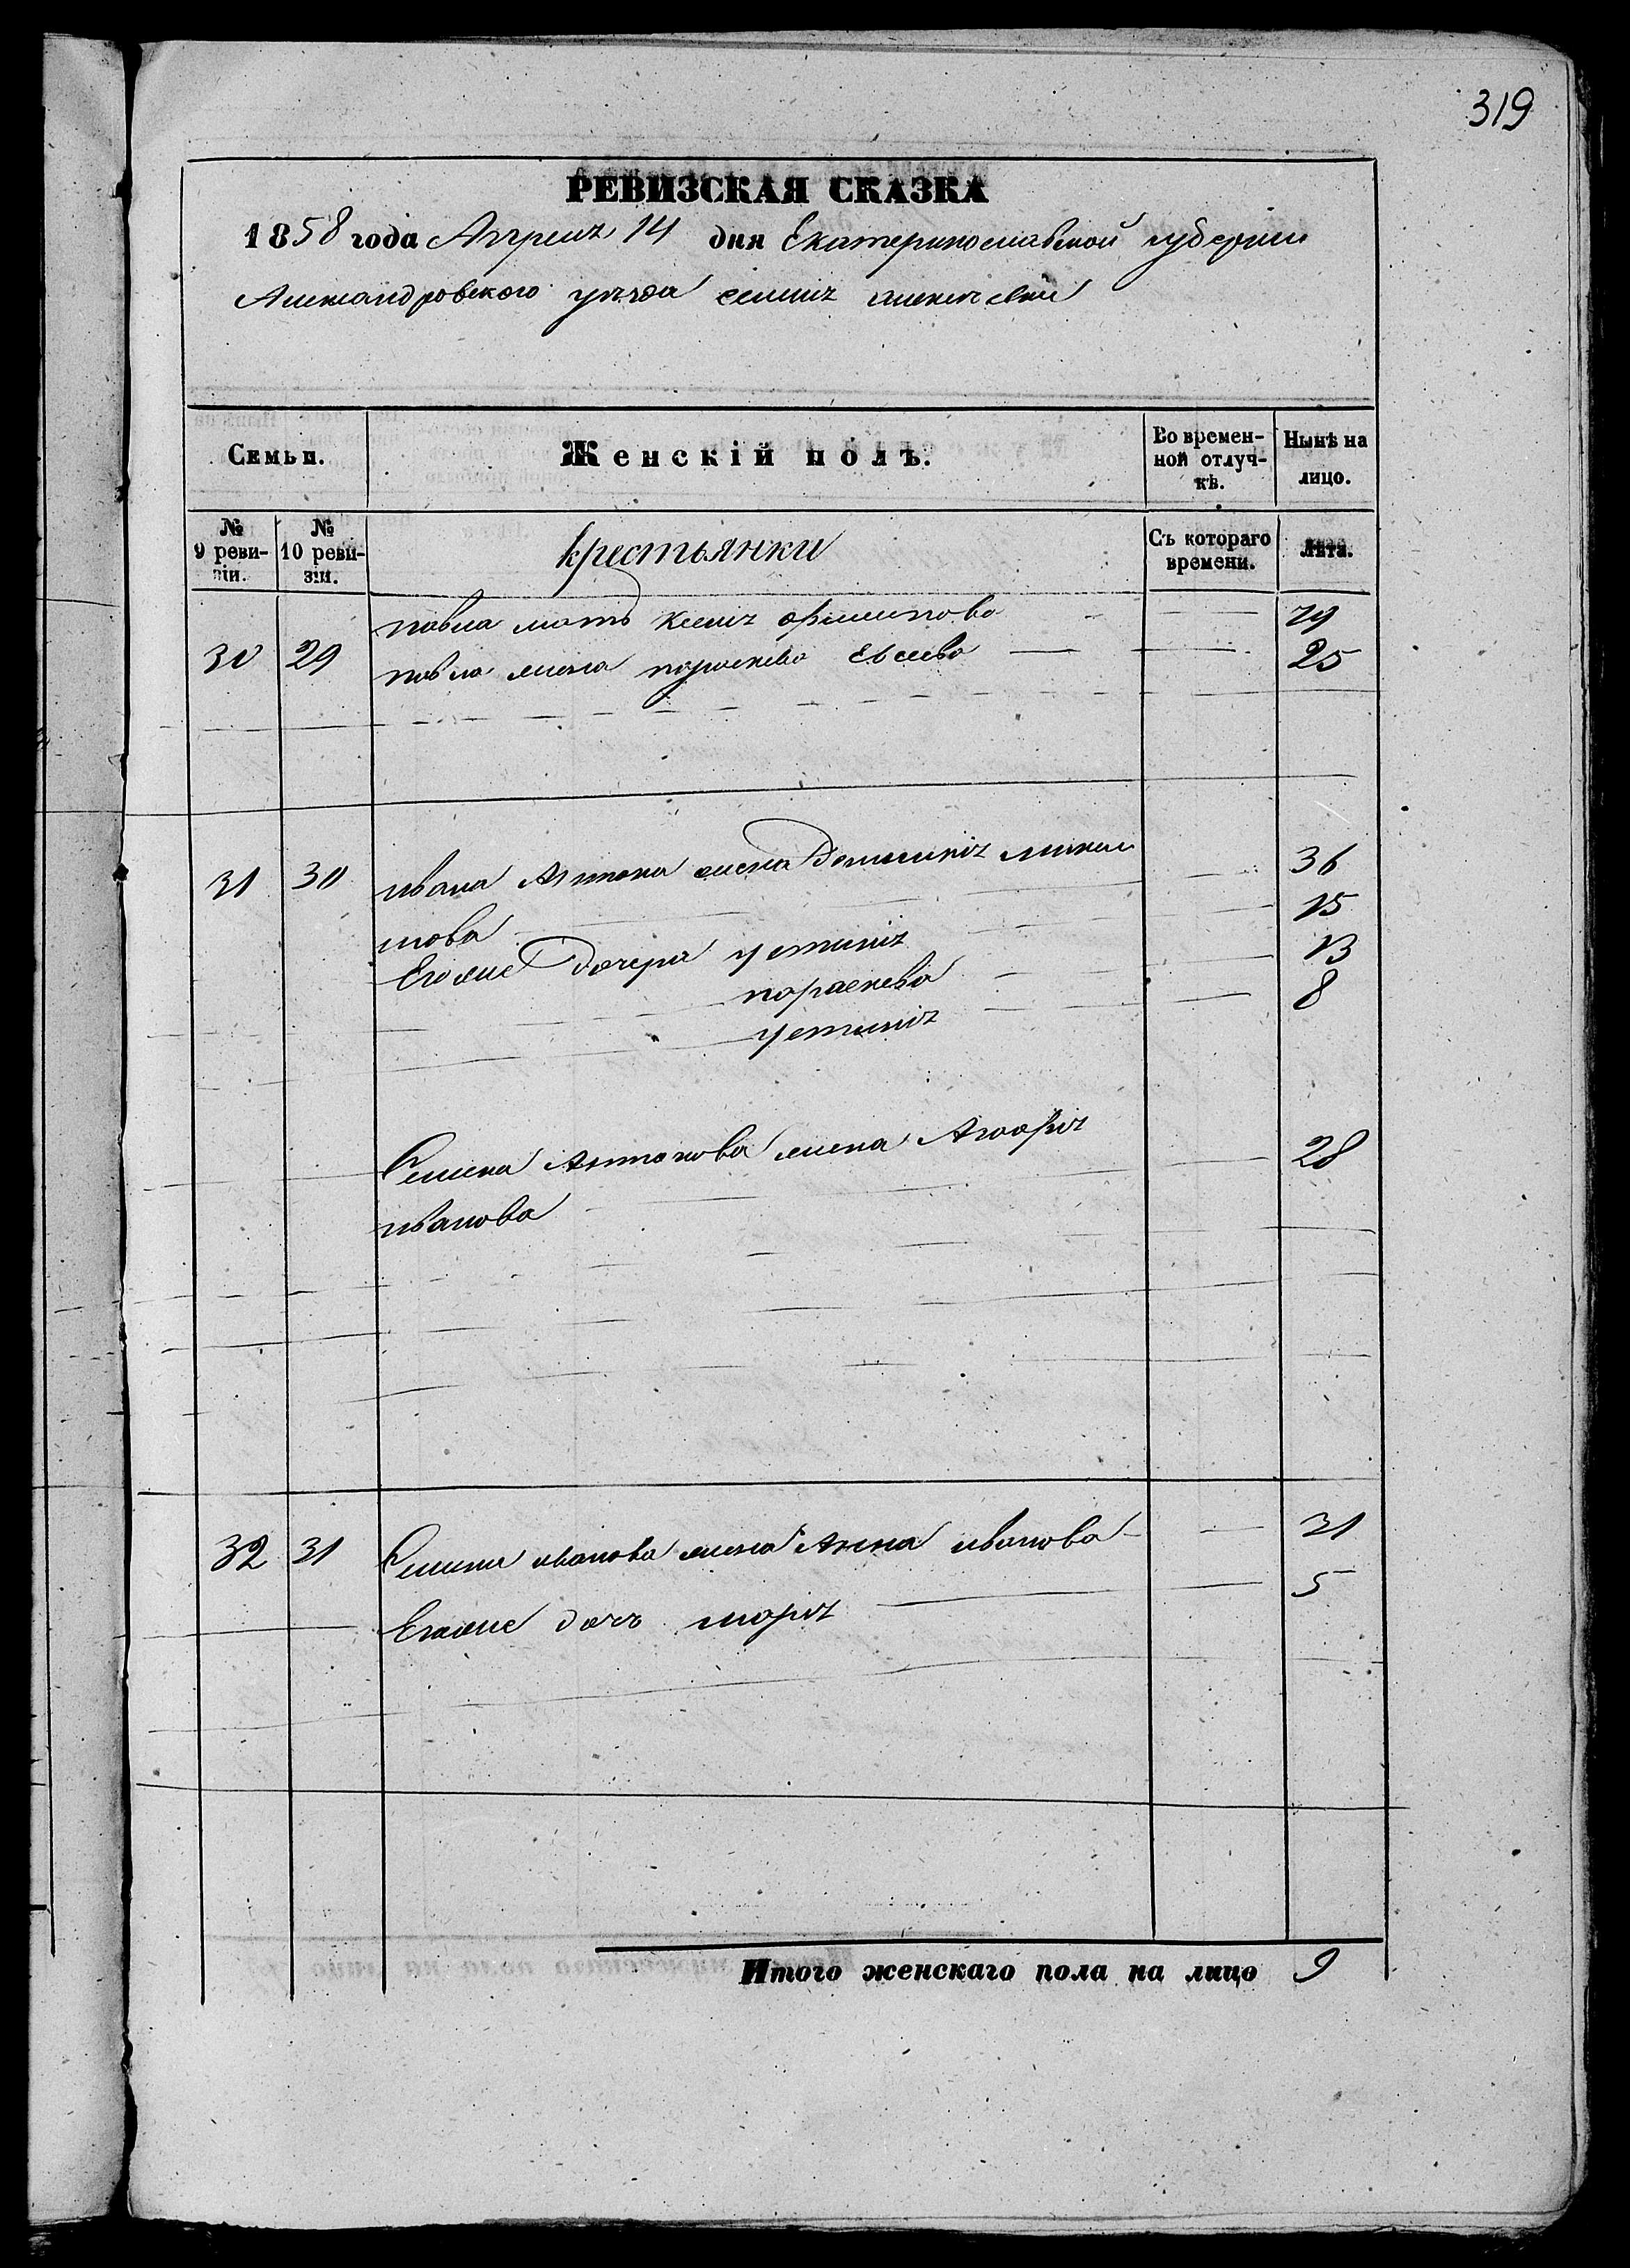 319
РЕВИЗСКАЯ СКАЗКА
1858 года Апреля 14 дня Екатеринославской губернии
Александровского уезда селия
Семьи.
Женскій полъ.
Во времен-
ной отлуч-
кѣ.
Нынѣ на
лицо.
№
9 реви-
зіи.
№
10 реви-
зіи.
крестьянки
Съ котораго
времени.
Лѣта.
павла мать филипова
30 29 павла жена параскева Евсеева 25
31 30 ивана Антона жена Домникія 36
нова 15
Егоже дочери устинія 13
параскева 8
устинія
Семена Антонова жена Агафія 28
иванова
32 31 Семена иванова жена Анна иванова 31
Егоже дочь марія 5
Итого женскаго пола на лицо 9